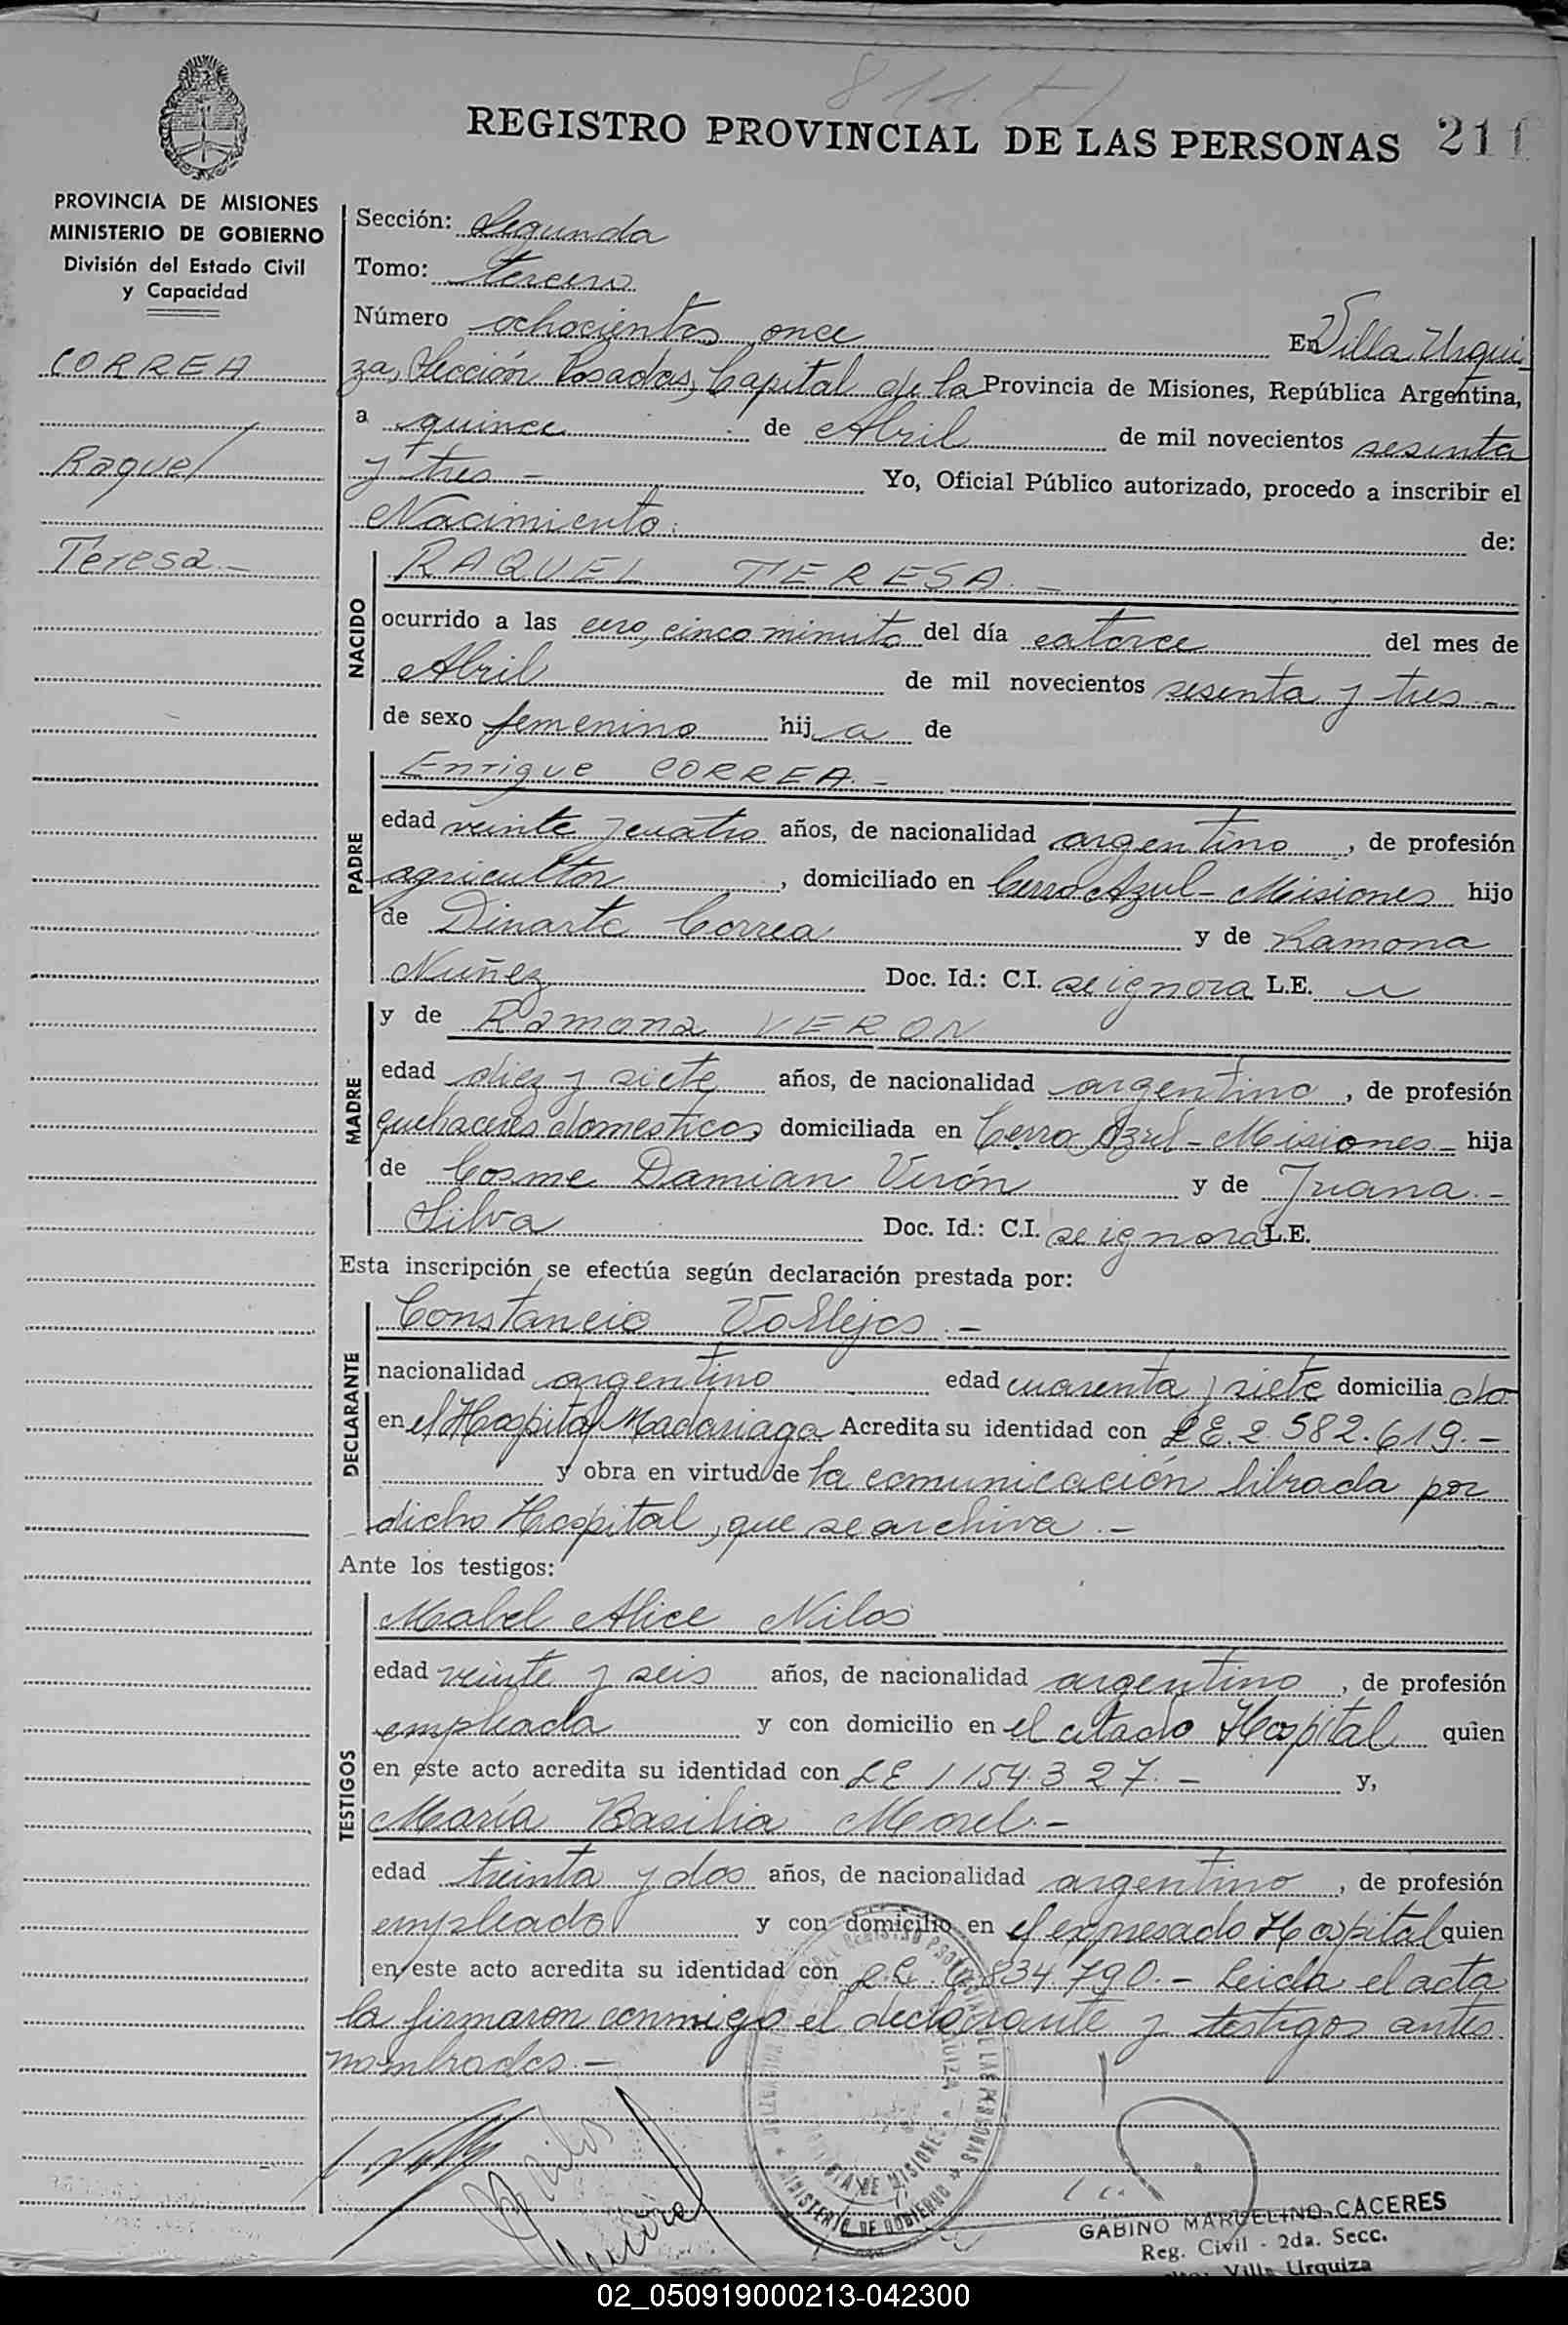 REGISTRO PROVINCIAL DE LAS PERSONAS 211
PROVINCIA DE MISIONES
MINISTERIO DE GOBIERNO
División del Estado Civil
y Capacidad
CORREA
Raquel
Teresa.-
Sección: Segunda
Tomo: tercero
Número ochocientos once En Villa Urqui-
za, Sección Posadas, Capital de la Provincia de Misiones, República Argentina,
a quince de Abril de mil novecientos sesenta
y tres - Yo, Oficial Público autorizado, procedo a inscribir el
Nacimiento. de:
NACIDO
RAQUEL TERESA.-
ocurrido a las cero, cinco minuto del día catorce del mes de
Abril de mil novecientos sesenta y tres.-
de sexo femenino hija de
PADRE
Enrique CORREA.-
edad veinte y cuatro años, de nacionalidad argentino, de profesión
agricultor, domiciliado en Cerro Azul - Misiones hijo
de Dinarte Correa y de Ramona
Nuñez Doc. Id.: C.I. se ignora L.E.
MADRE
y de Ramona VERON
edad diez y siete años, de nacionalidad argentino, de profesión
quehaceres domesticos domiciliada en Cerro Azul - Misiones - hija
de Cosme Damian Verón y de Juana.-
Silva Doc. Id.: C.I. se ignora L.E.
Esta inscripción se efectúa según declaración prestada por:
DECLARANTE
Constancio Vallejos.-
nacionalidad argentino edad cuarenta y siete domiciliado
en el Hospital Madariaga Acredita su identidad con LE. 2.582.619.-
y obra en virtud de la comunicación librada por
dicho Hospital, que se archiva.-
Ante los testigos:
TESTIGOS
Mabel Alice Nilos
edad veinte y seis años, de nacionalidad argentino, de profesión
empleada y con domicilio en el citado Hospital quien
en este acto acredita su identidad con LE 1154.327.- y,
María Basilia Morel.-
edad treinta y dos años, de nacionalidad argentino, de profesión
empleado y con domicilio en el expresado Hospital quien
en este acto acredita su identidad con 834.790.- Leida el acta
la firmaron conmigo el declarante y testigos antes
nombrados.-
MINISTERIO DE GOBIERNO
GABINO MARCELINO CACERES
Reg. Civil - 2da. Secc.
Villa Urquiza
02_050919000213-042300